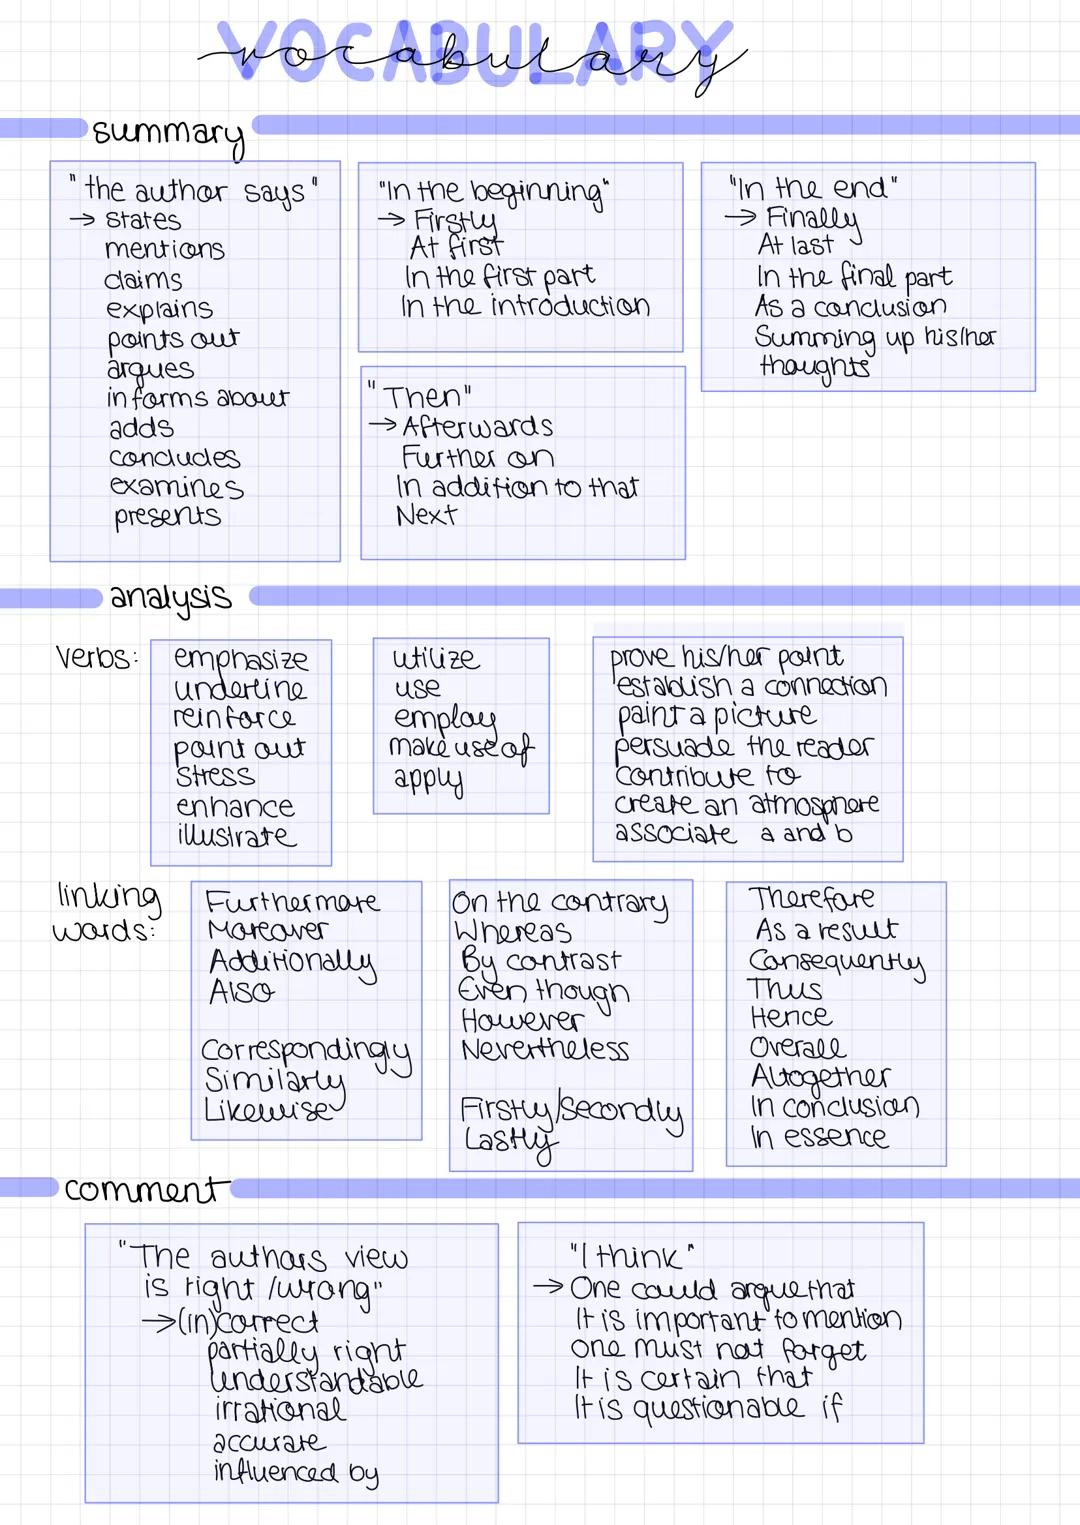 VOCABULARY
vocabulary
summary
"the author says"
→ states
mentions
claims
explains
points out
argues
informs about
adds
concludes
examines
presents
"In the beginning"
→ Firstly
At first
In the first part
In the introduction
"Then"
→ Afterwards
Further on
In addition to that
Next
"In the end"
→ Finally
At last
In the final part
As a conclusion
Summing up his/her
thoughts
analysis
verbs:
emphasize
underline
reinforce
point out
stress
enhance
illustrate
utilize
use
employ
make use of
apply
prove his/her point
establish a connection
paint a picture
persuade the reader
contribute to
create an atmosphere
associate a and b
linking
words:
Furthermore
Moreover
Additionally
Also
Correspondingly
Similarly
Likewise
On the contrary
Whereas
By contrast
Even though
However
Nevertheless
Firstly/Secondly
Lastly
Therefore
As a result
Consequently
Thus
Hence
Overall
Altogether
In conclusion
In essence
comment
"The authors view
is right /wrong"
→(in)correct
partially right
understandable
irrational
accurate
influenced by
"I think"
→ One could argue that
It is important to mention
one must not forget
It is certain that
It is questionable if